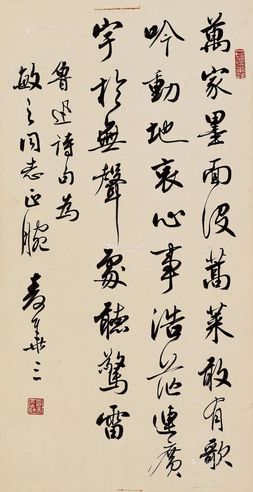 萬家墨面沒蒿萊敢有歌
吟動地哀心事浩茫連廣
宇於無聲處聽驚雷
魯迅詩句為
敏之同志正腕 麥華三